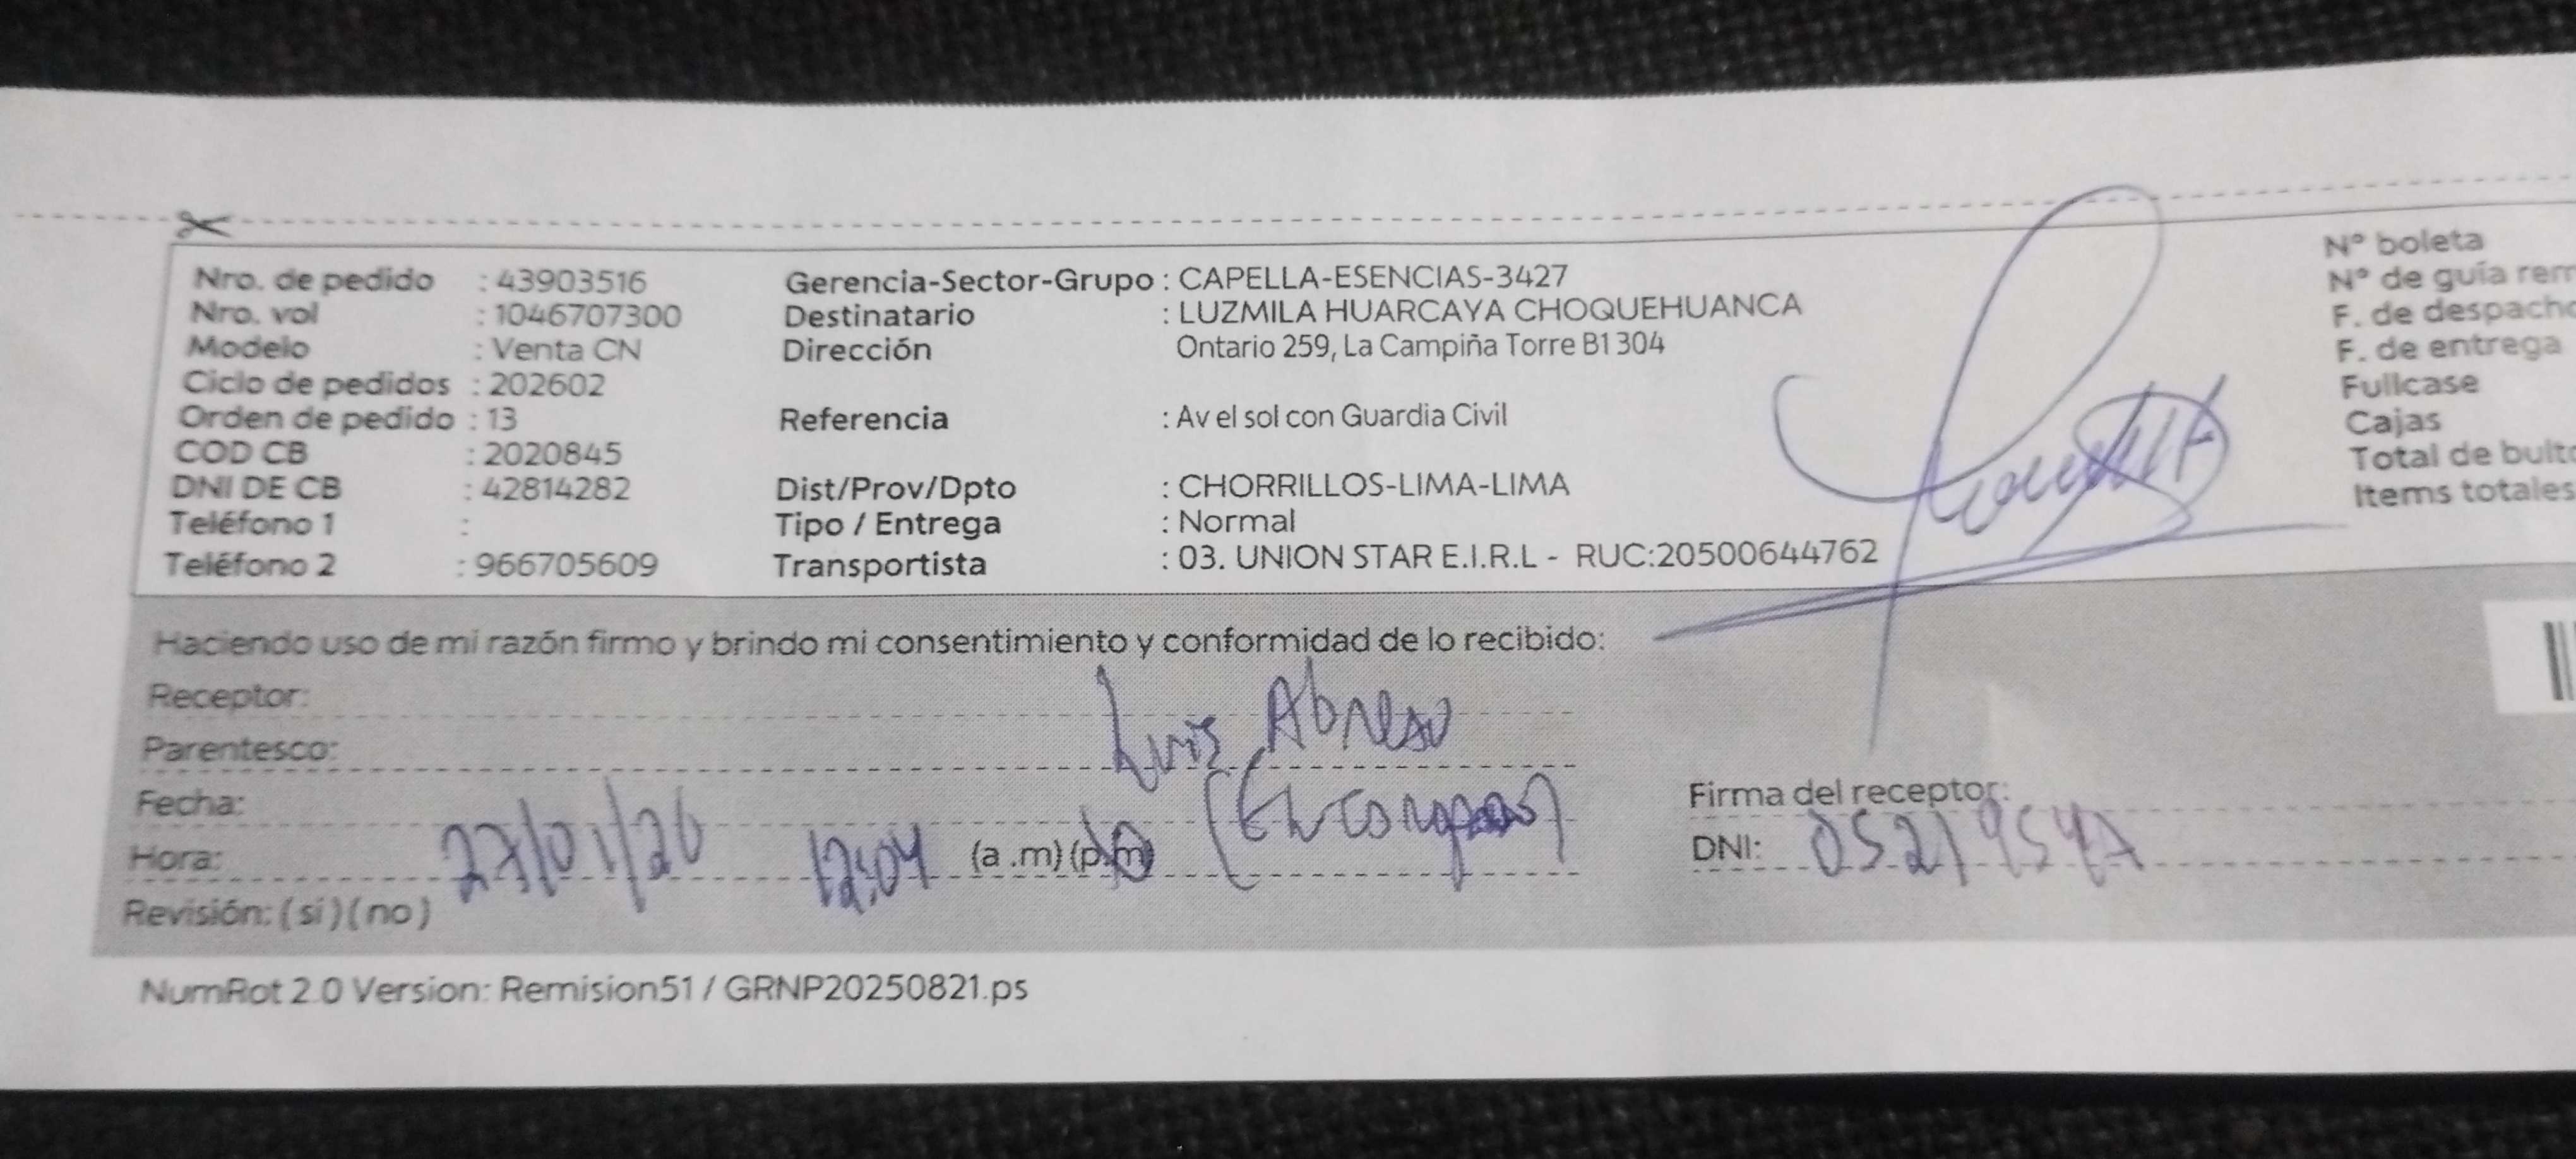 Nro. de pedido : 43903516
Nro. vol : 1046707300
Modelo : Venta CN
Ciclo de pedidos : 202602
Orden de pedido : 13
COD CB : 2020845
DNI DE CB : 42814282
Teléfono 1 :
Teléfono 2 : 966705609
Gerencia-Sector-Grupo : CAPELLA-ESENCIAS-3427
Destinatario : LUZMILA HUARCAYA CHOQUEHUANCA
Dirección Ontario 259, La Campiña Torre B1 304
Referencia : Av el sol con Guardia Civil
Dist/Prov/Dpto : CHORRILLOS-LIMA-LIMA
Tipo / Entrega : Normal
Transportista : 03. UNION STAR E.I.R.L - RUC:20500644762
N° boleta
N° de guía rem
F. de despacho
F. de entrega
Fullcase
Cajas
Total de bulto
Items totales
Haciendo uso de mi razón firmo y brindo mi consentimiento y conformidad de lo recibido:
Receptor:
Luis Abreu
Parentesco:
Fecha:
27/01/26
Hora: 12:04 (a .m) (p.m)
Revisión: ( si ) ( no )
Firma del receptor:
DNI:
NumRot 2.0 Version: Remision51 / GRNP20250821.ps